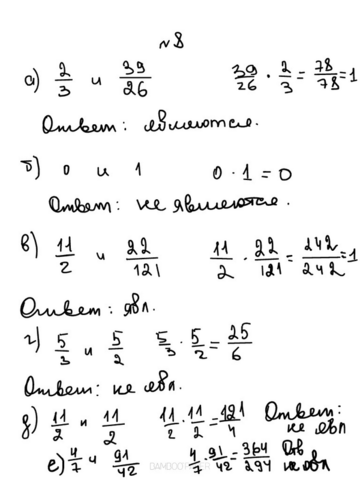 №8
а) 2/3 и 39/26   39/26 · 2/3 = 78/78 = 1
Ответ: являются.
б) 0 и 1   0 · 1 = 0
Ответ: не являются.
в) 11/2 и 22/121   11/2 · 22/121 = 242/242 = 1
Ответ: явл.
г) 5/3 и 5/2   5/3 · 5/2 = 25/6
Ответ: не явл.
д) 11/2 и 11/2   11/2 · 11/2 = 121/4   Ответ: не явл
е) 4/7 и 91/42   4/7 · 91/42 = 364/294   Отв не явл